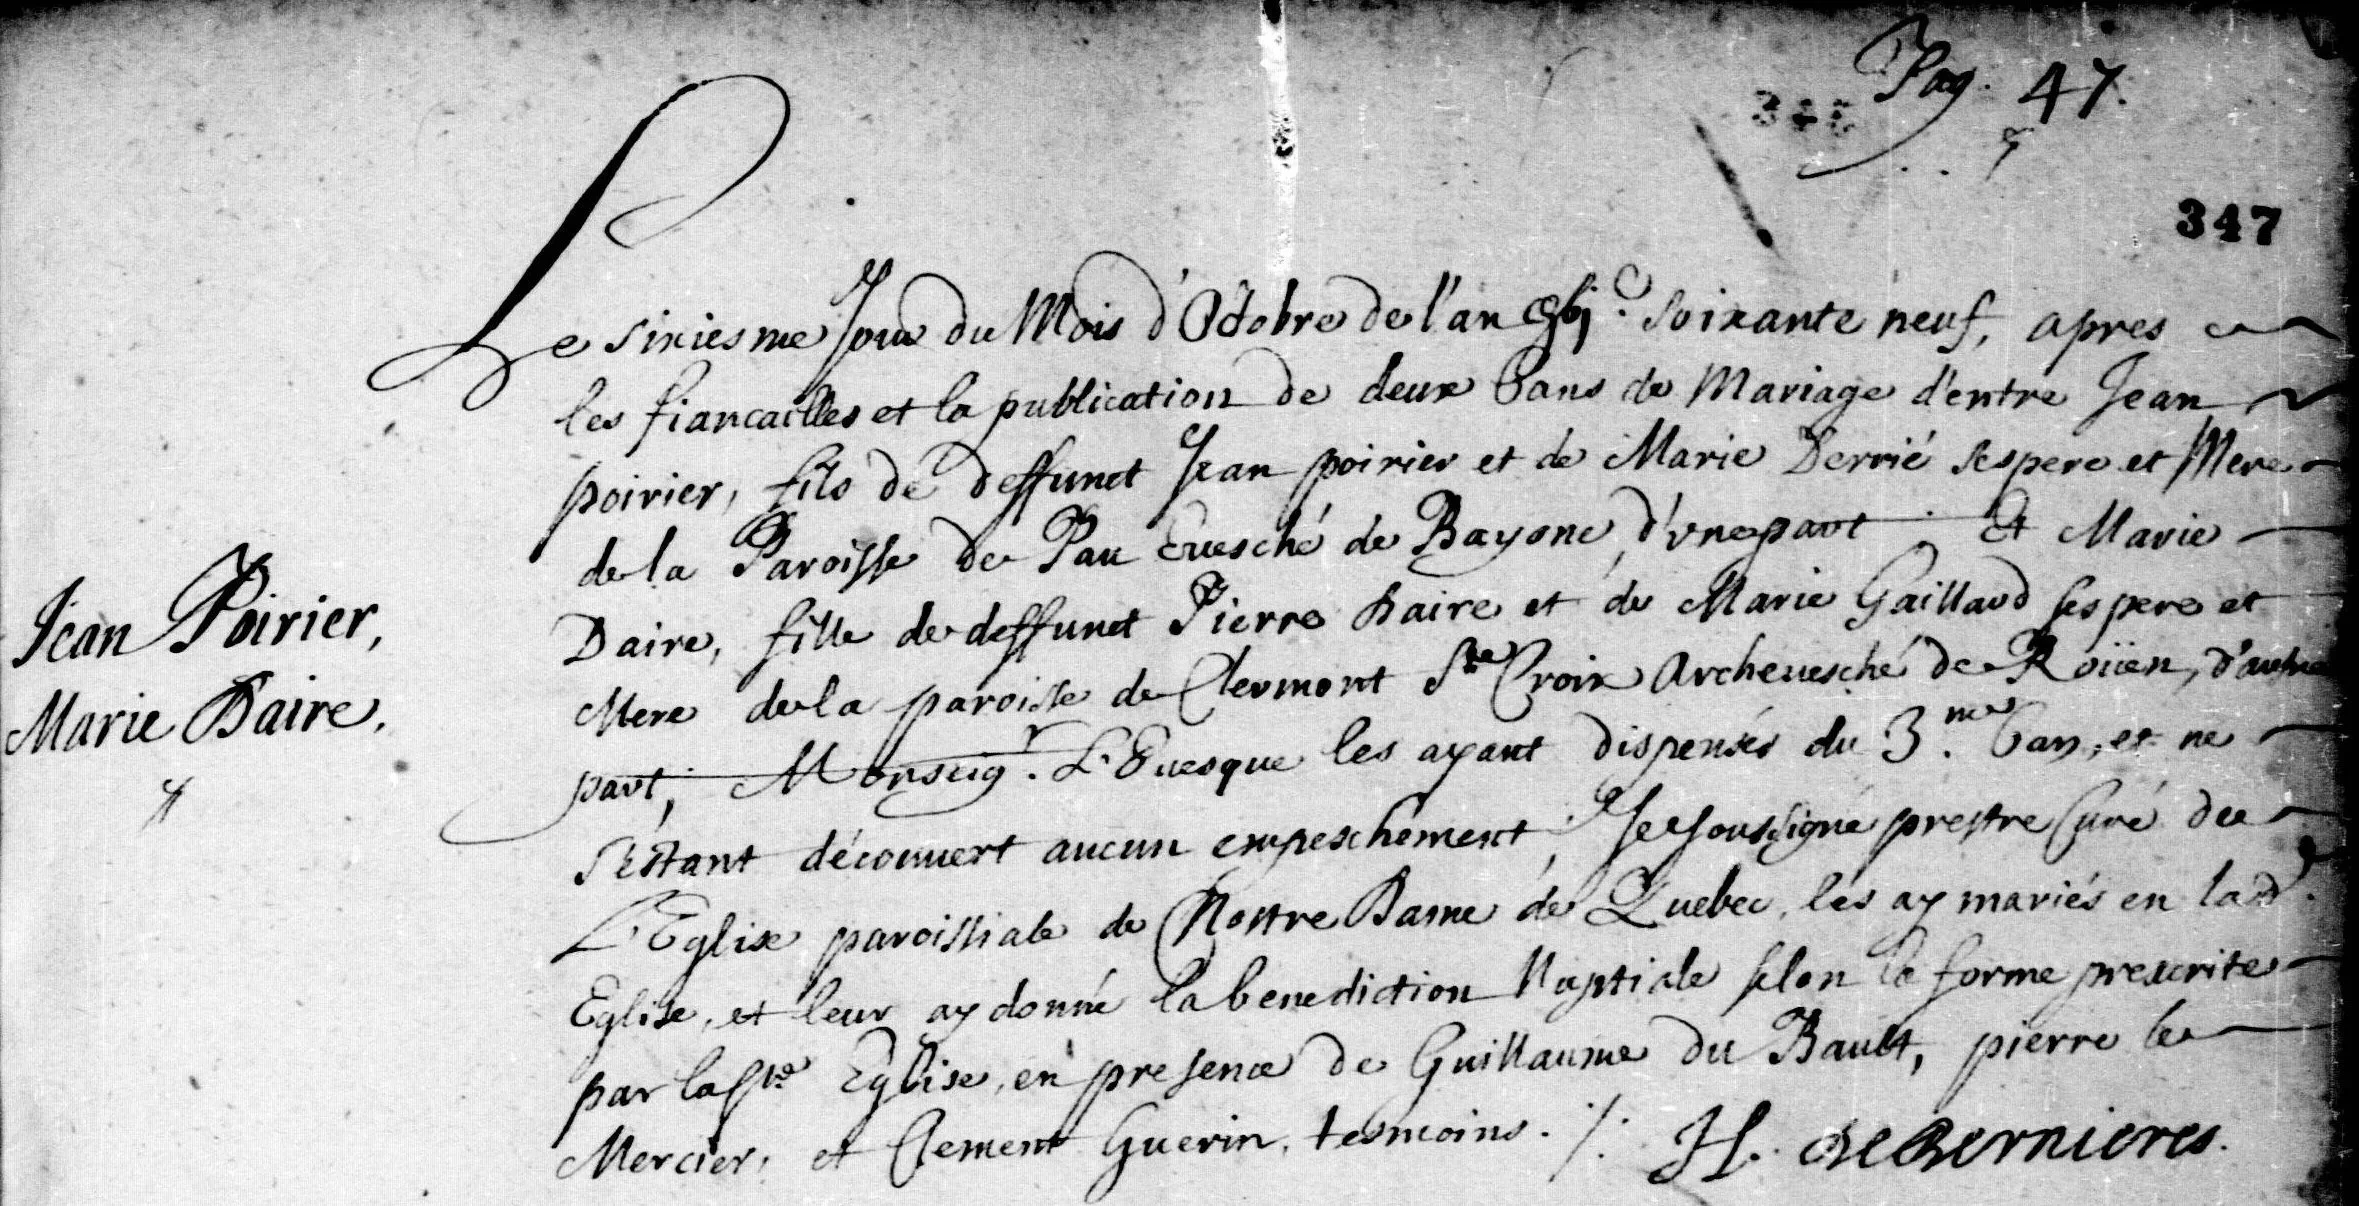 Pag. 47.
347
Le Sixiesme Jour du Mois d'Octobre de l'an gbj.c Soixante neuf, apres
les fiancailles et la publication de deux bans de Mariage d'entre Jean
poirier, fils de deffunct Jean poirier et de Marie Derrié Ses pere et Mere
de la Paroisse de Pau Euesché de Bayone, d'vne part. Et Marie
Daire, fille de deffunct Pierre Daire et de Marie Gaillard ses pere et
Mere de la paroisse de Clermont Ste Croix Archeuesché de Roüen, d'autre
part; Monseigr. L'Euesque les ayant dispensés du 3.me ban, et ne
S'éstant découuert aucun empeschement, Je Soussigné prestre Curé de
L'Eglise paroissiale de Nostre Dame de Quebec, les ay mariés en lad.
Eglise, et leur ay donné la benediction Nuptiale selon la forme prescrite
par la Ste Eglise, en presence de Guillaume du Bault, pierre le
Mercier, et Clement Guerin, tesmoins. ./.
H. de Bernieres.
Jean Poirier,
Marie Daire.